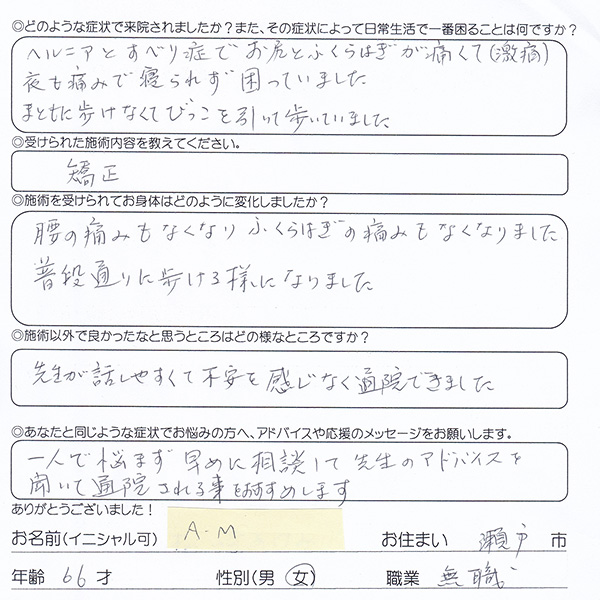 ◎どのような症状で来院されましたか？また、その症状によって日常生活で一番困ることは何ですか？
ヘルニアとすべり症でお尻とふくらはぎが痛くて(激痛)
夜も痛みで寝られず困っていました
まともに歩けなくてびっこを引いて歩いていました
◎受けられた施術内容を教えてください。
矯正
◎施術を受けられてお身体はどのように変化しましたか？
腰の痛みもなくなりふくらはぎの痛みもなくなりました
普段通りに歩ける様になりました
◎施術以外で良かったなと思うところはどの様なところですか？
先生が話しやすくて不安を感じなく通院できました
◎あなたと同じような症状でお悩みの方へ、アドバイスや応援のメッセージをお願いします。
一人で悩まず早めに相談して先生のアドバイスを
聞いて通院される事をおすすめします
ありがとうございました！
お名前(イニシャル可) A.M お住まい 瀬戸 市
年齢 66 才 性別(男 女) 職業 無職